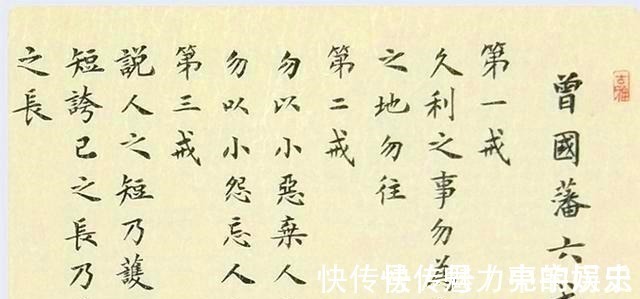 曾國藩六
第一戒
久利之事勿
之地勿往
第二戒
勿以小惡棄人
勿以小怨忘人
第三戒
説人之短乃護
短誇已之長乃
之長
快传